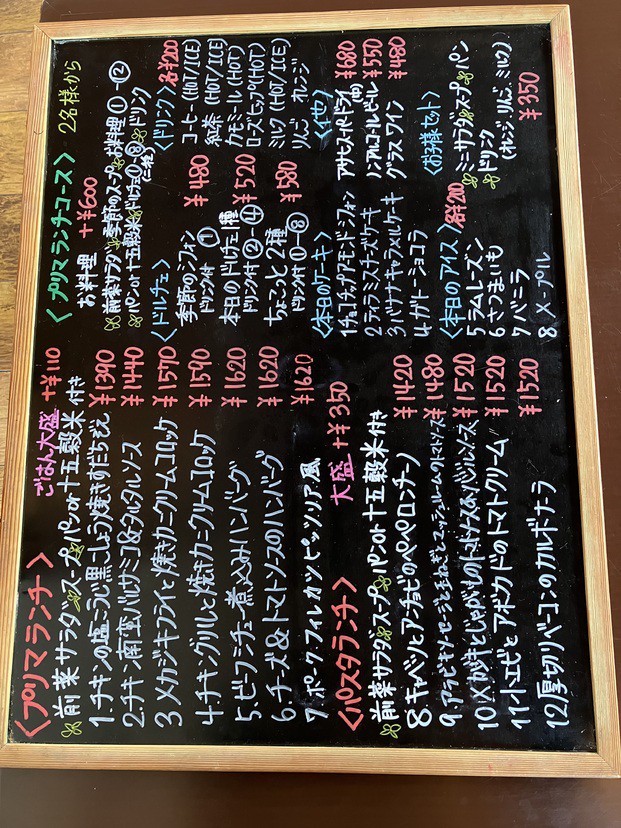 〈プリマランチ〉 ごはん大盛 +¥110
前菜サラダ スープ パンor十五穀米 付き
1.チキンの塩こうじ黒こしょう焼きすだちぽん ¥1390
2.チキン南蛮バルサミコ&タルタルソース ¥1440
3 メカジキフライと焼きカニクリームコロッケ ¥1570
4 チキングリルと焼きカニクリームコロッケ ¥1590
5.ビーフシチュー煮込みハンバーグ ¥1620
6.チーズ&トマトソースのハンバーグ ¥1620
7.ポークフィレカツ ピッツァイオリア風 ¥1620
〈パスタランチ〉 大盛 +¥350
前菜サラダ スープ パンor十五穀米 付き
8.キャベツとアンチョビのペペロンチーノ ¥1420
9 アラビキソーセージと玉ねぎとマッシュルームのトマトソース ¥1480
10 メカジキとじゃがいものトマトソース バジルソース ¥1520
11 トエビとアボカドのトマトクリーム ¥1520
12厚切りベーコンのカルボナーラ ¥1520
〈プリマランチコース〉 2名様から
お料理 +¥600
前菜サラダ 季節のスープ お料理①-⑫
パンor十五穀米 ドルチェ①-⑧ ドリンク
〈ドルチェ〉
季節のシフォン ¥480
ドリンク付 ①
本日のドルチェ1種 ¥520
ドリンク付 ②-④
ちょこっと2種 ¥580
ドリンク付 ①-⑧
〈本日のケーキ〉
1チョコチップアーモンドシフォン
2ティラミスチーズケーキ
3 バナナキャラメルケーキ
4 ガトーショコラ
〈本日のアイス〉 各¥200
5 ラムレーズン
6 さつまいも
7 バニラ
8 メープル
〈ドリンク〉 各¥200
コーヒー(HOT/ICE)
紅茶(HOT/ICE)
カモミール(HOT)
ローズヒップ(HOT)
ミルク(HOT/ICE)
りんご オレンジ
〈他〉
アサヒスーパードライ ¥680
ノンアルコールビール ¥550
グラスワイン ¥480
〈お子様セット〉
ミニサラダ スープ パン
ドリンク
(オレンジ、りんご、ミルク)
¥350